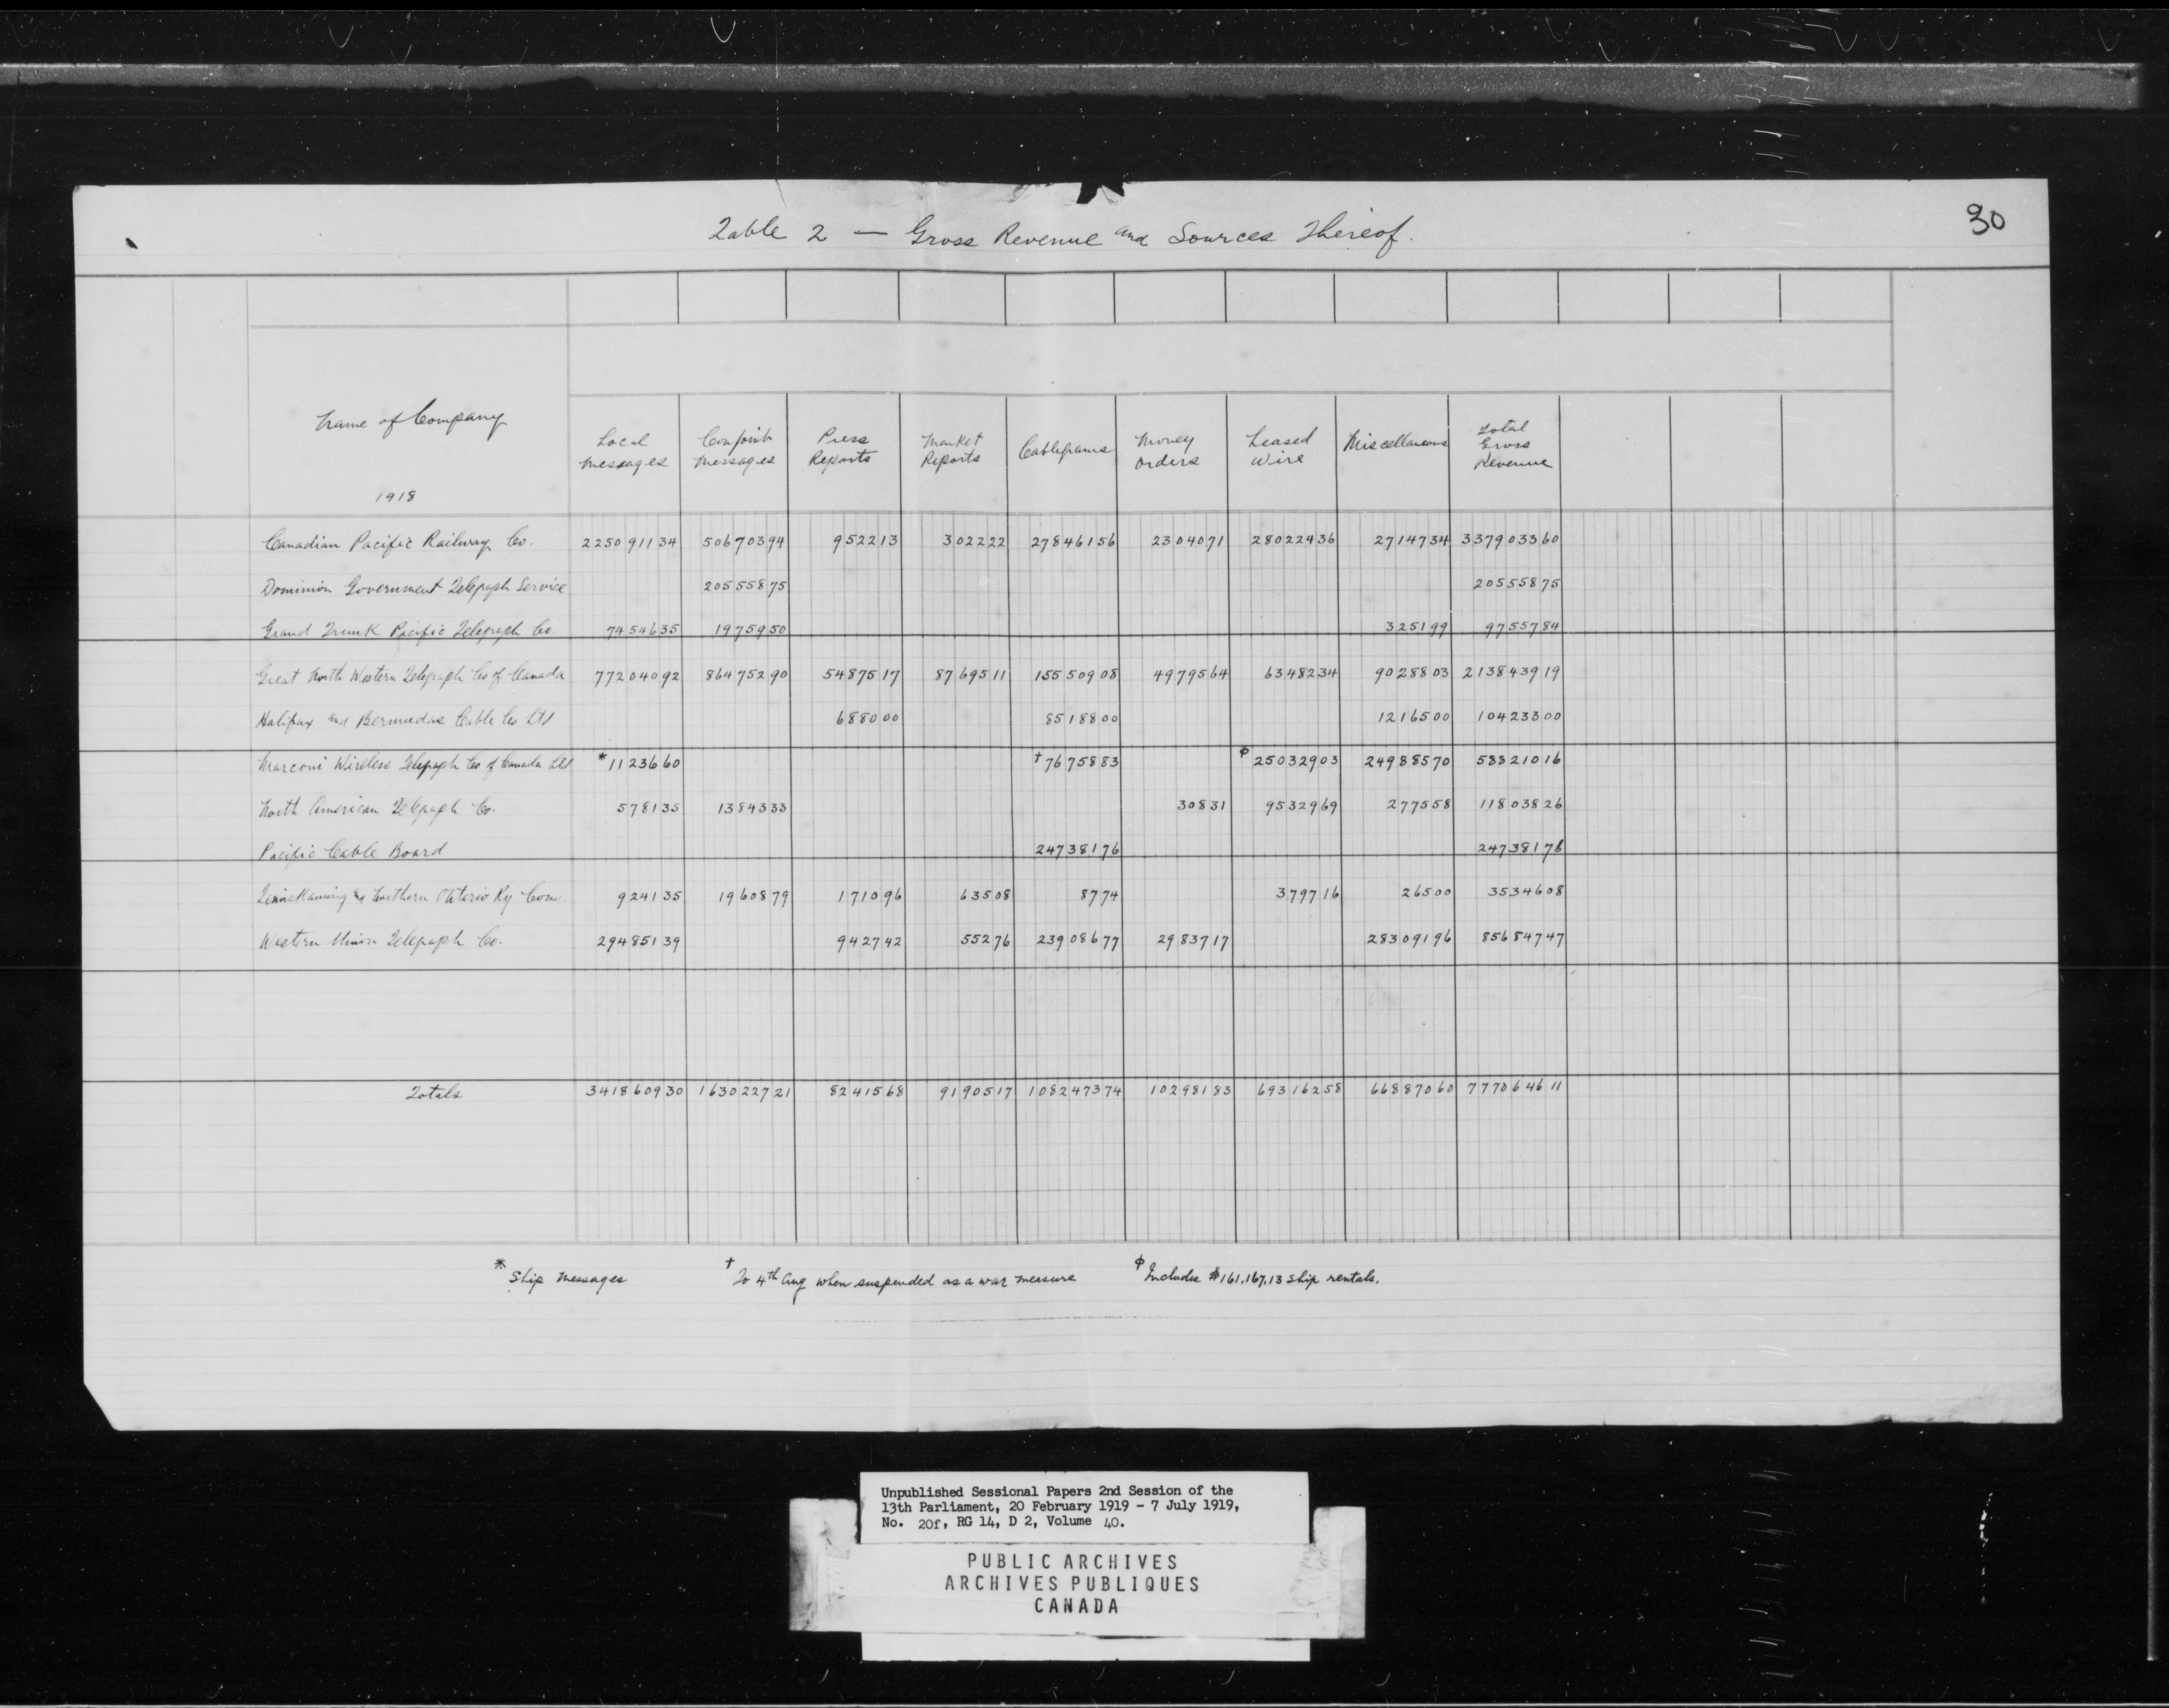 30
Table 2 — Gross Revenue and Sources Thereof.
Name of Company 1918 | Local Messages | Conjoint Messages | Press Reports | Market Reports | Cablegrams | Money Orders | Leased Wire | Miscellaneous | Total Gross Revenue
Canadian Pacific Railway Co. 225091134 50670394 952213 302222 27846156 2304071 28022436 2714734 337903360
Dominion Government Telegraph Service 20555875 20555875
Grand Trunk Pacific Telegraph Co. 7454635 1975950 325199 9755784
Great North Western Telegraph Co of Canada 77204092 86475290 5487517 8769511 15550908 4979564 6348234 9028803 213843919
Halifax and Bermudas Cable Co Ltd 688000 8518800 1216500 10423300
Marconi Wireless Telegraph Co of Canada Ltd * 1123660 † 7675883 φ 25032903 24988570 58821016
North American Telegraph Co. 578135 1384333 30831 9532969 277558 11803826
Pacific Cable Board 24738176 24738176
Temiskaming & Northern Ontario Ry Com. 924135 1960879 171096 63508 8774 379716 26500 3534608
Western Union Telegraph Co. 29485139 942742 55276 23908677 2983717 28309196 85684747
Totals 341860930 163022721 8241568 9190517 108247374 10298183 69316258 66887060 777064611
* Ship Messages † To 4th Aug when suspended as a war measure φ Includes $161,167.13 ship rentals.
Unpublished Sessional Papers 2nd Session of the
13th Parliament, 20 February 1919 - 7 July 1919,
No. 20f, RG 14, D 2, Volume 40.
PUBLIC ARCHIVES
ARCHIVES PUBLIQUES
CANADA